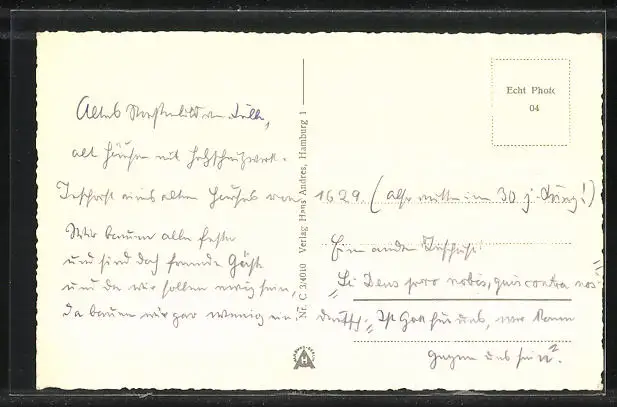 Altes Straßenbild von Celle,
alte Häuser mit Holzschnitzwerk.
Inschrift eines alten Hauses von 1629. (also mitten im 30 j. Krieg!)
Wir bauen alle feste
und sind doch fremde Gäste
und da wir sollen ewig sein,
da bauen wir gar wenig ein.
Nr. C 3/4010 Verlag Hans Andres, Hamburg 1
Echt Photo
04
Eine andere Inschrift:
"Si Deus pro nobis, quis contra nos"
deutsch: "Ist Gott für uns, wer kann
gegen uns sein".